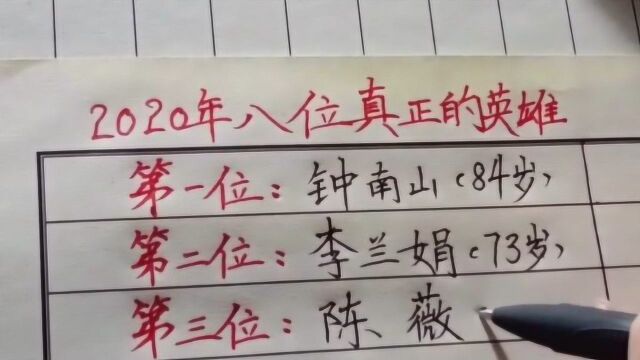 2020年八位真正的英雄
第一位：钟南山（84岁）
第二位：李兰娟（73岁）
第三位：陈薇